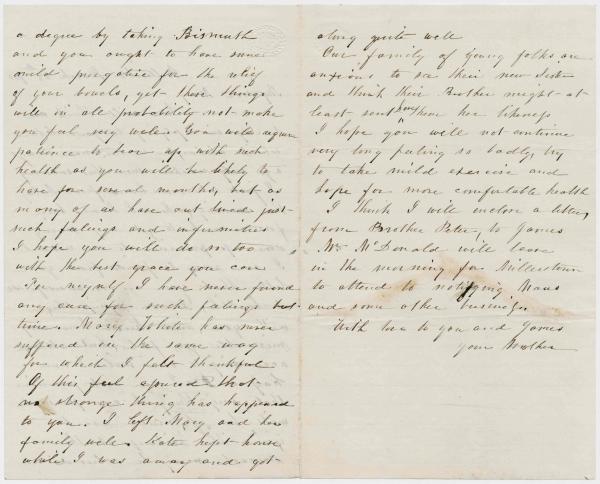 a degree by taking Bismuth
and you ought to have some
mild purgative for the relief
of your bowels, yet these things
will in all probability not make
you feel very well. You will require
patience to bear up with such
health as you will be likely to
have for several months, but as
many of us have out lived just
such failings and infirmities
I hope you will do so too
with the best grace you can
For myself I have never found
any cure for such failings but
time. Mary White has never
suffered in the same way
for which I felt thankful
Of this feel assured that
no strange thing has happened
to you. I left Mary and her
family well. Kate kept house
while I was away and got
along quite well
Our family of young folks are
anxious to see their new Sister
and think their Brother might at
least send them her likeness
I hope you will not continue
very long feeling so badly, try
to take mild exercise and
hope for more comfortable health
I think I will enclose a letter
from Brother Peter, to James
Mr. McDonald will leave
in the morning for Millerstown
to attend to notifying
and some other business
With love to you and James
your Mother